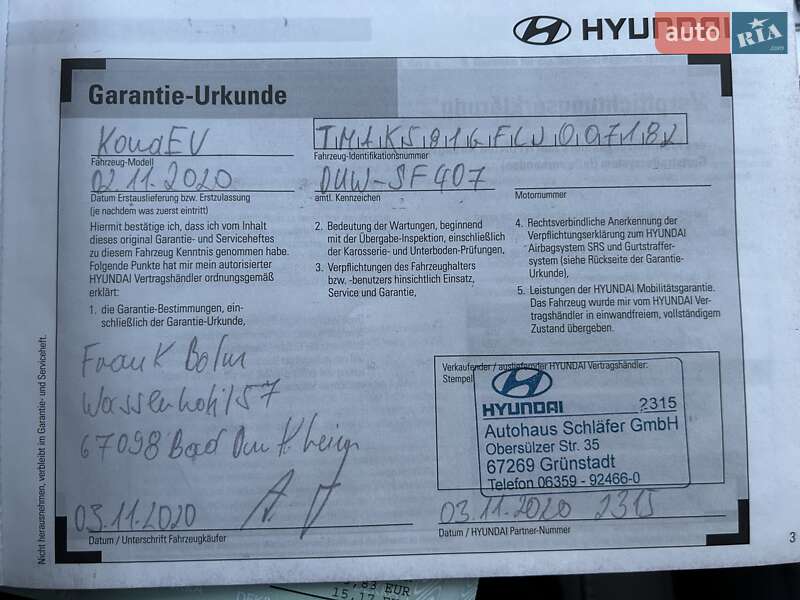 HYUNDAI
auto RIA.com
Garantie-Urkunde
Kona EV
Fahrzeug-Modell
TMAK581GFLJ007182
Fahrzeug-Identifikationsnummer
02.11.2020
Datum Erstauslieferung bzw. Erstzulassung
(je nachdem was zuerst eintritt)
DÜW-SF407
amtl. Kennzeichen
Motornummer
Hiermit bestätige ich, dass ich vom Inhalt
dieses original Garantie- und Serviceheftes
zu diesem Fahrzeug Kenntnis genommen habe.
Folgende Punkte hat mir mein autorisierter
HYUNDAI Vertragshändler ordnungsgemäß
erklärt:
1. die Garantie-Bestimmungen, ein-
schließlich der Garantie-Urkunde,
2. Bedeutung der Wartungen, beginnend
mit der Übergabe-Inspektion, einschließlich
der Karosserie- und Unterboden-Prüfungen,
3. Verpflichtungen des Fahrzeughalters
bzw. -benutzers hinsichtlich Einsatz,
Service und Garantie,
4. Rechtsverbindliche Anerkennung der
Verpflichtungserklärung zum HYUNDAI
Airbagsystem SRS und Gurtstraffer-
system (siehe Rückseite der Garantie-
Urkunde),
5. Leistungen der HYUNDAI Mobilitätsgarantie.
Das Fahrzeug wurde mir vom HYUNDAI Ver-
tragshändler in einwandfreiem, vollständigem
Zustand übergeben.
Frank Bohn
57
67098 Bad Dürkheim
03.11.2020
Datum / Unterschrift Fahrzeugkäufer
Verkaufender / ausliefernder HYUNDAI Vertragshändler:
Stempel
HYUNDAI 2315
Autohaus Schläfer GmbH
Obersülzer Str. 35
67269 Grünstadt
Telefon 06359 - 92466-0
03.11.2020 2315
Datum / HYUNDAI Partner-Nummer
Nicht herausnehmen, verbleibt im Garantie- und Serviceheft.
3
EUR
EUR